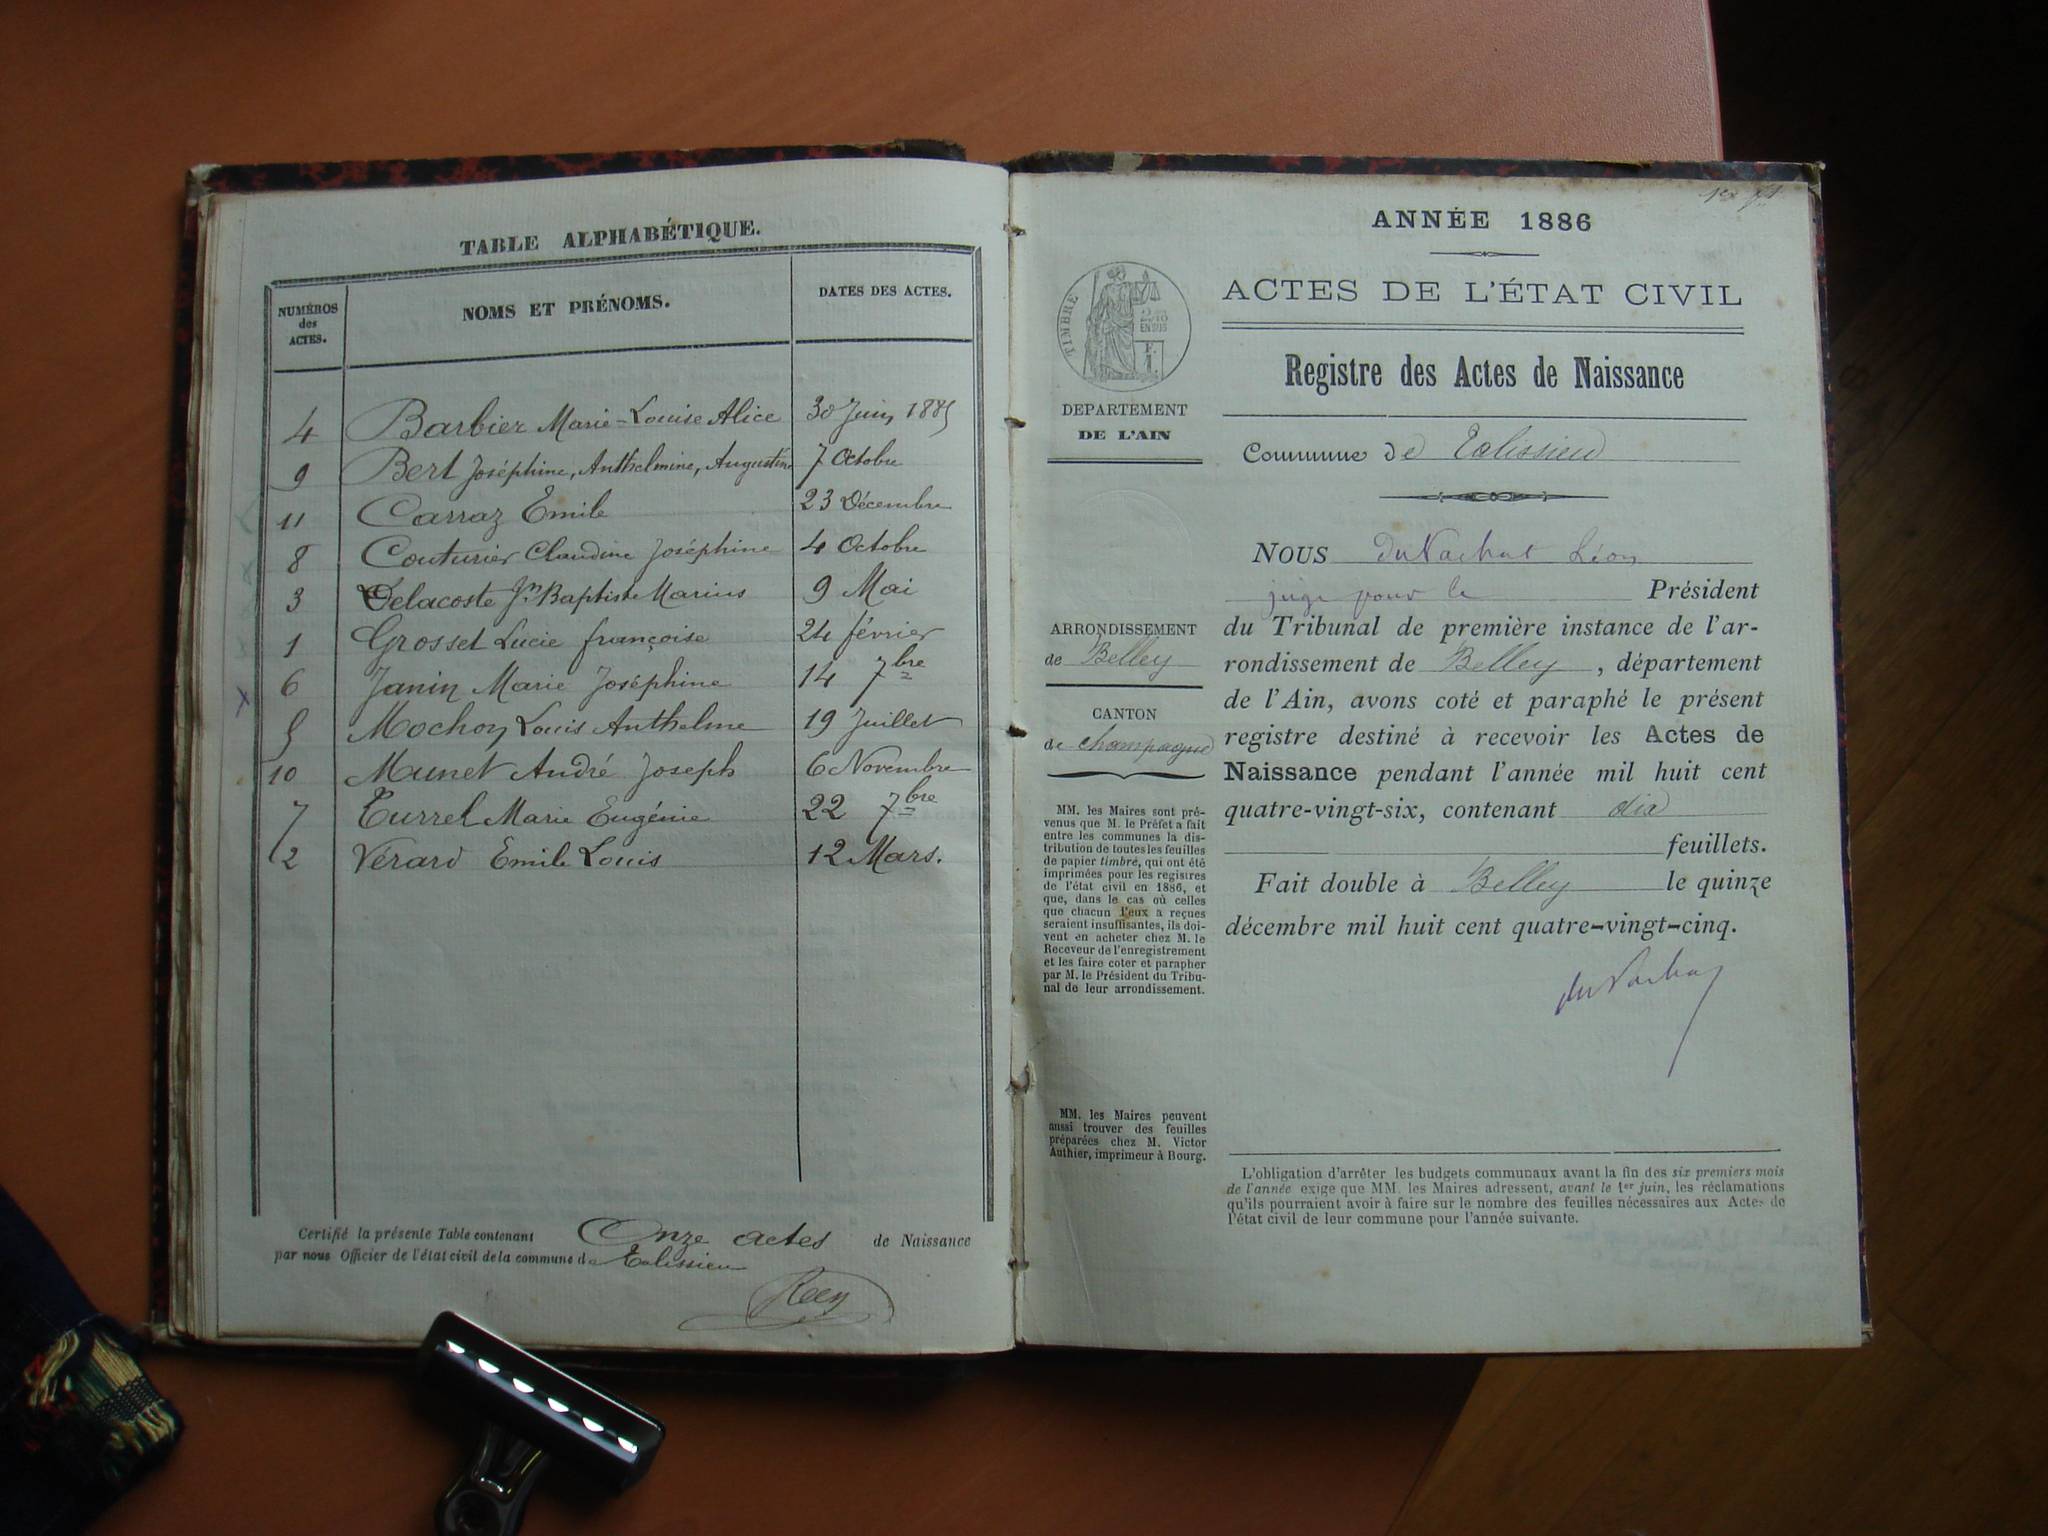 TABLE ALPHABÉTIQUE.
NUMÉROS
des
ACTES.
NOMS ET PRÉNOMS.
DATES DES ACTES.
4 Barbier Marie-Louise Alice 30 Juin 1885
9 Bert Joséphine, Anthelmine, Augustine 7 Octobre
11 Carraz Emile 23 Décembre
8 Couturier Claudine Joséphine 4 Octobre
3 Delacoste Jn Baptiste Marius 9 Mai
1 Grosset Lucie françoise 24 février
6 Janin Marie Joséphine 14 7bre
5 Mochon Louis Anthelme 19 Juillet
10 Munet André Joseph 6 Novembre
7 Turrel Marie Eugénie 22 7bre
2 Vérard Emile Louis 12 Mars.
Certifié la présente Table contenant Onze actes de Naissance
par nous Officier de l'état civil de la commune de Talissieu
ANNÉE 1886
ACTES DE L'ÉTAT CIVIL
Registre des Actes de Naissance
Commune de Talissieu
TIMBRE
2/10
EN SUS
F.
1.
DEPARTEMENT
DE L'AIN
ARRONDISSEMENT
de Belley
CANTON
de Champagne
MM. les Maires sont pré-
venus que M. le Préfet a fait
entre les communes la dis-
tribution de toutes les feuilles
de papier timbré, qui ont été
imprimées pour les registres
de l'état civil en 1886, et
que, dans le cas où celles
que chacun l'eux a reçues
seraient insuffisantes, ils doi-
vent en acheter chez M. le
Receveur de l'enregistrement
et les faire coter et parapher
par M. le Président du Tribu-
nal de leur arrondissement.
MM. les Maires peuvent
aussi trouver des feuilles
préparées chez M. Victor
Authier, imprimeur à Bourg.
NOUS du Nachat Léon
juge pour le Président
du Tribunal de première instance de l'ar-
rondissement de Belley, département
de l'Ain, avons coté et paraphé le présent
registre destiné à recevoir les Actes de
Naissance pendant l'année mil huit cent
quatre-vingt-six, contenant dix
feuillets.
Fait double à Belley le quinze
décembre mil huit cent quatre-vingt-cinq.
du Nachat
L'obligation d'arrêter les budgets communaux avant la fin des six premiers mois
de l'année exige que MM. les Maires adressent, avant le 1er juin, les réclamations
qu'ils pourraient avoir à faire sur le nombre des feuilles nécessaires aux Actes de
l'état civil de leur commune pour l'année suivante.